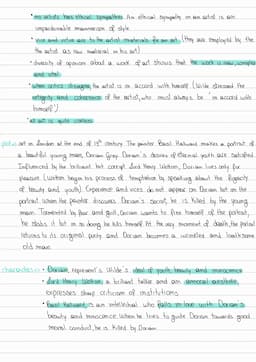 • no artists has ethical sympathies. An ethical sympathy in an artist is an
unpardonable mannerism of style
• vice and virtue are to the artist materials for an art (they are employed by the
the artist as raw material in his art)
• diversity of opinion about a work of art shows that the work is new, complex
and vital
• when critics disagree, the artist is in accord with himself (Wilde stressed the
integrity and coherence of the artist, who must always be in accord with
himself)
• all art is quite useless
plot: set in London at the end of 19th century. The painter Basil Hallward makes a portrait of
a beautiful young man, Dorian Gray. Dorian's desires of eternal youth are satisfied.
Influenced by the brilliant but corrupt Lord Henry Wotton, Dorian lives only for
pleasure (Wotton began his process of temptation by speaking about the fugacity
of beauty and youth). Experience and vices do not appear on Dorian but on the
portrait. When the painter discovers Dorian's secret, he is killed by the young
man. Tormented by fear and guilt, Dorian wants to free himself of the portrait,
he stabs it but in so doing he kills himself. At the very moment of death, the portrait
returns to its original purity and Dorian becomes a wrinkled and loathsome
old man.
characters: • Dorian, represent's Wilde's ideal of youth, beauty and innocence
• Lord Henry Wotton, a brilliant talker and an amoral aesthete,
expresses sharp criticism of institutions
• Basil Hallward, is an intellectual who falls in love with Dorian's
beauty and innocence. When he tries to guide Dorian towards good
moral conduct, he is killed by Dorian